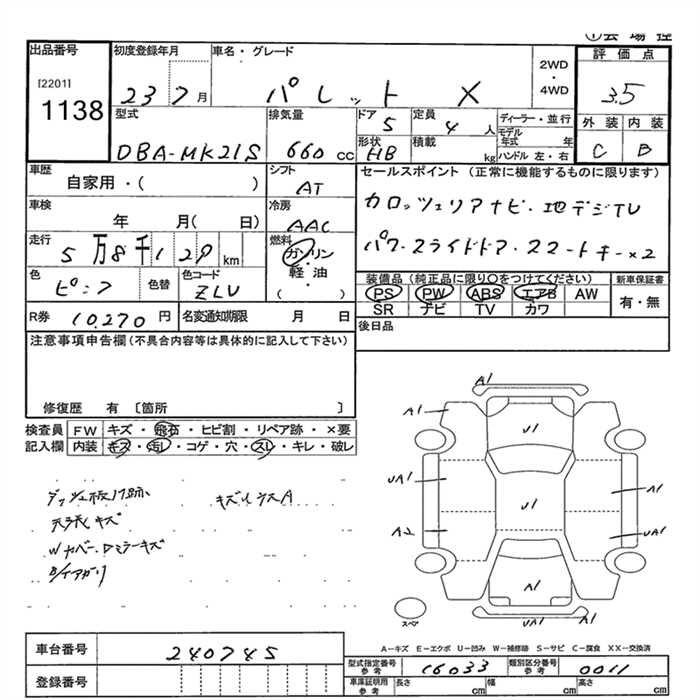 ①会場控
出品番号
[2201]
1138
初度登録年月
23 7月
車名・グレード
パレット X
2WD
・
4WD
評価点
3.5
型式
DBA-MK21S
排気量
660 CC
ドア
5
形状
HB
定員
4 人
積載
kg
ディーラー・並行
モデル年式 年
ハンドル 左・右
外装 内装
C B
車歴
自家用・( )
シフト
AT
セールスポイント (正常に機能するものに限ります)
カロッツェリアナビ・地デジTV
パワースライドドア・スマートキー×2
車検
年 月( 日)
冷房
AAC
走行
5万8千129 km
燃料
ガソリン
・
軽油
・
( )
色
ピンク
色替
色コード
ZLV
装備品 (純正品に限り○をつけてください)
PS PW ABS エアB AW
SR ナビ TV カワ
新車保証書
有・無
R券 10,270 円
名変通知期限 月 日
後日品
注意事項申告欄(不具合内容等は具体的に記入して下さい)
修復歴 有 〔箇所 〕
検査員 FW キズ・飛石・ヒビ割・リペア跡・×要
記入欄 内装 キズ・汚レ・コゲ・穴・スレ・キレ・破レ
天張キズ
A1
A1
U1
UA1
A1
U1
A2
UA1
A1
UA1
A1
スペア
A-キズ E-エクボ U-凹み W-補修跡 S-サビ C-腐食 XX-交換済
車台番号 240745
登録番号
型式指定番号 参考 16033
類別区分番号 参考 0011
車庫証明用 参考 長さ cm 幅 cm 高さ cm